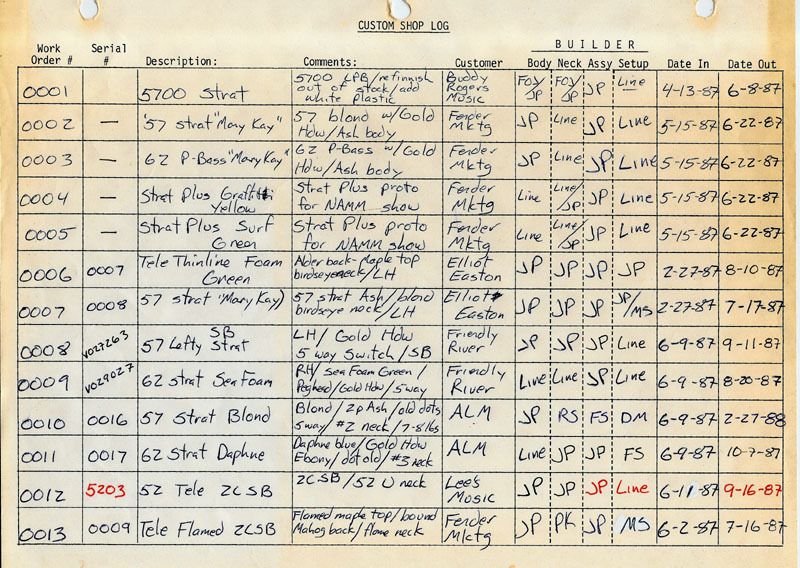 CUSTOM SHOP LOG
BUILDER
Work Order # Serial # Description: Comments: Customer Body Neck Assy Setup Date In Date Out
0001 5700 Strat 5700 LPB/refinnish out of stock/add white plastic Buddy Rogers Music Foy/JP Foy/JP JP Line 4-13-87 6-8-87
0002 — '57 Strat "Mary Kay" 57 blond w/Gold Hdw/Ash body Fender Mktg JP Line JP Line 5-15-87 6-22-87
0003 — 62 P-Bass "Mary Kay" 62 P-Bass w/Gold Hdw/Ash body Fender Mktg JP Line JP Line 5-15-87 6-22-87
0004 — Strat Plus Graffiti Yellow Strat Plus proto for NAMM show Fender Mktg Line Line/JP JP Line 5-15-87 6-22-87
0005 — Strat Plus Surf Green Strat Plus proto for NAMM show Fender Mktg Line Line/JP JP Line 5-15-87 6-22-87
0006 0007 Tele Thinline Foam Green Alder back-Maple top birdseye neck/LH Elliot Easton JP JP JP JP 2-27-87 8-10-87
0007 0008 57 strat "Mary Kay) 57 strat Ash/blond birdseye neck/LH Elliot Easton JP JP JP JP/MS 2-27-87 7-17-87
0008 V027263 57 Lefty SB Strat LH/Gold Hdw 5 way Switch/SB Friendly River JP JP JP Line 6-9-87 9-11-87
0009 V029027 62 strat Sea Foam RH/Sea Foam Green/ Peghead/Gold Hdw/5way Friendly River Line Line JP Line 6-9-87 8-20-87
0010 0016 57 Strat Blond Blond/2p Ash/old dots 5way/#2 neck/7-8 lbs ALM JP RS FS DM 6-9-87 2-27-88
0011 0017 62 Strat Daphne Daphne blue/Gold Hdw Ebony/dot old/#3 neck ALM Line JP JP FS 6-9-87 10-7-87
0012 5203 52 Tele 2CSB 2CSB/52 U neck Lee's Music JP JP JP Line 6-11-87 9-16-87
0013 0009 Tele Flamed 2CSB Flamed maple top/bound Mahog back/flame neck Fender Mktg JP PK JP MS 6-2-87 7-16-87